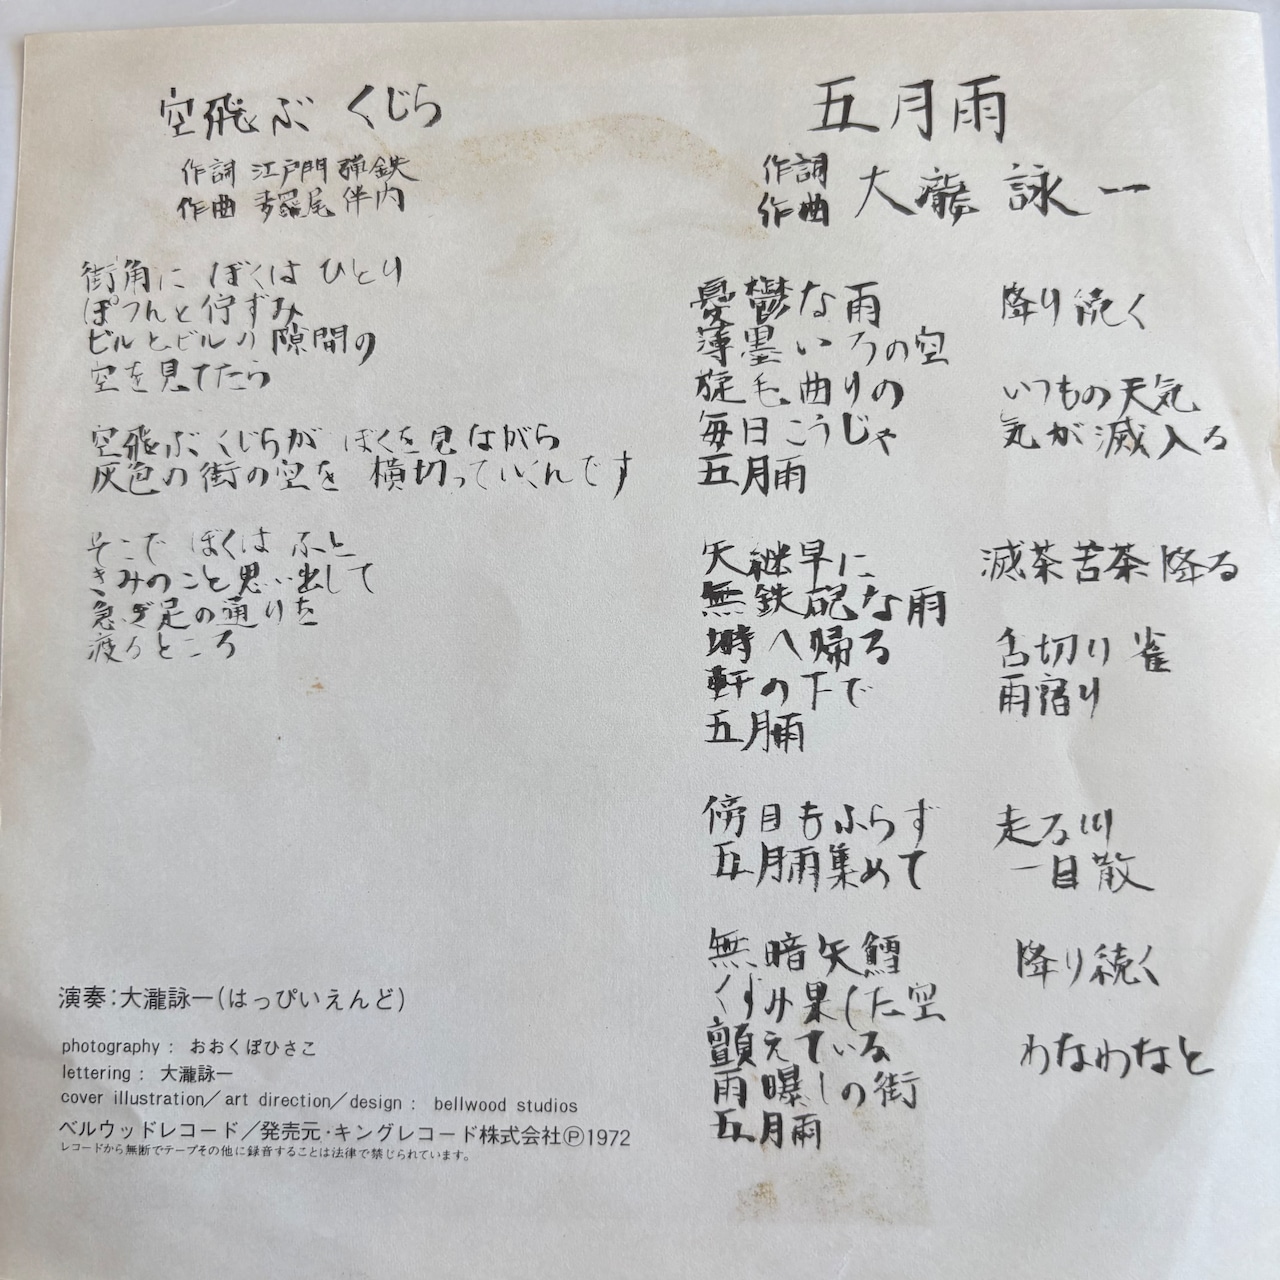 空飛ぶ くじら
作詞 江戸門弾鉄
作曲 多羅尾伴内
街角に ぼくは ひとり
ぽつんと佇ずみ
ビルとビルの隙間の
空を見てたら
空飛ぶ くじらが ぼくを見ながら
灰色の街の空を 横切っていくんです
そこで ぼくは ふと
きみのこと思い出して
急ぎ足の通りを
渡るところ
演奏:大瀧詠一(はっぴいえんど)
photography : おおくぼひさこ
lettering : 大瀧詠一
cover illustration/art direction/design : bellwood studios
ベルウッドレコード/発売元・キングレコード株式会社Ⓟ1972
レコードから無断でテープその他に録音することは法律で禁じられています。
五月雨
作詞
作曲 大瀧 詠一
憂鬱な雨 降り続く
薄墨いろの空
旋毛曲りの いつもの天気
毎日こうじゃ 気が滅入る
五月雨
矢継早に 滅茶苦茶降る
無鉄砲な雨
塒へ帰る 舌切り雀
軒の下で 雨宿り
五月雨
傍目もふらず 走る川
五月雨集めて 一目散
無暗矢鱈 降り続く
くすみ果した空
顫えている わなわなと
雨曝しの街
五月雨